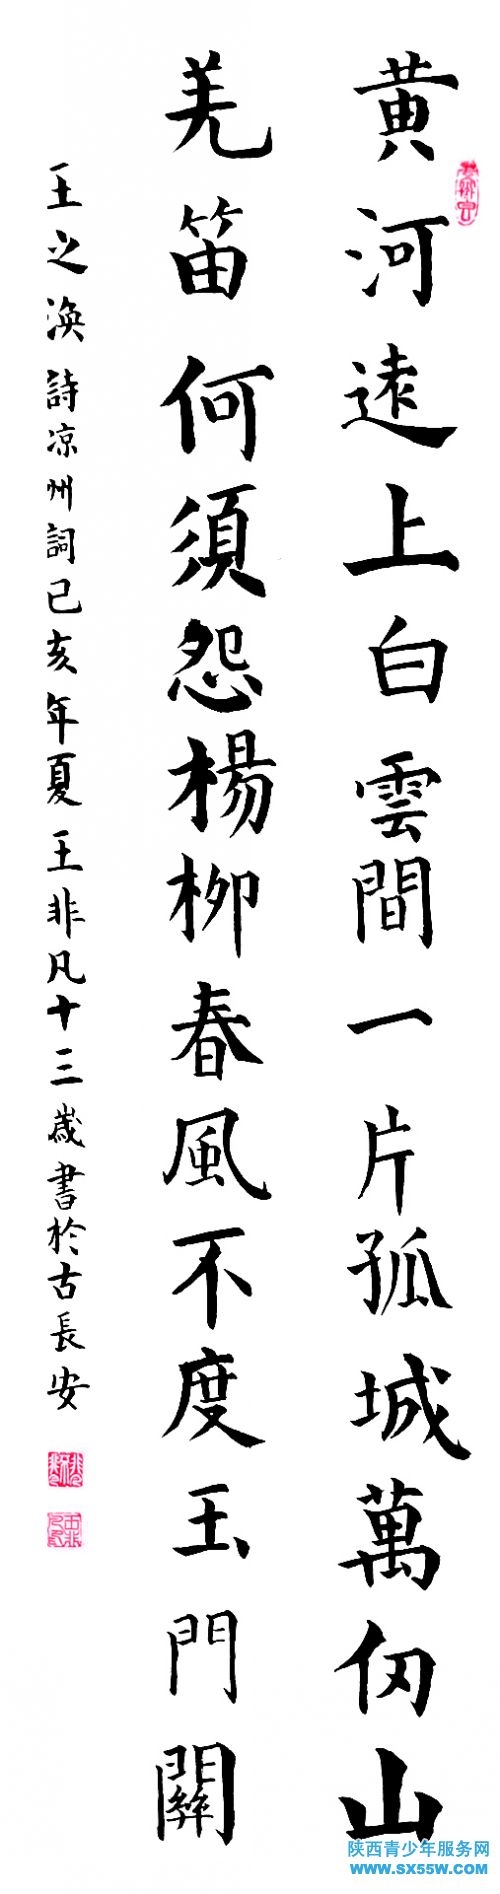 黄河遠上白雲間一片孤城萬仞山
羌笛何須怨楊柳春風不度玉門關
王之渙詩凉州詞己亥年夏王非凡十三歲書於古長安
陕西青少年服务网
www.sx55w.com